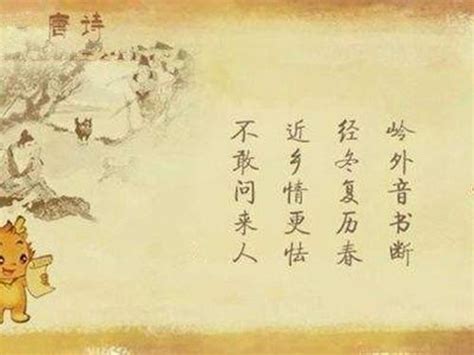 唐诗
岭外音书断
经冬复历春
近乡情更怯
不敢问来人